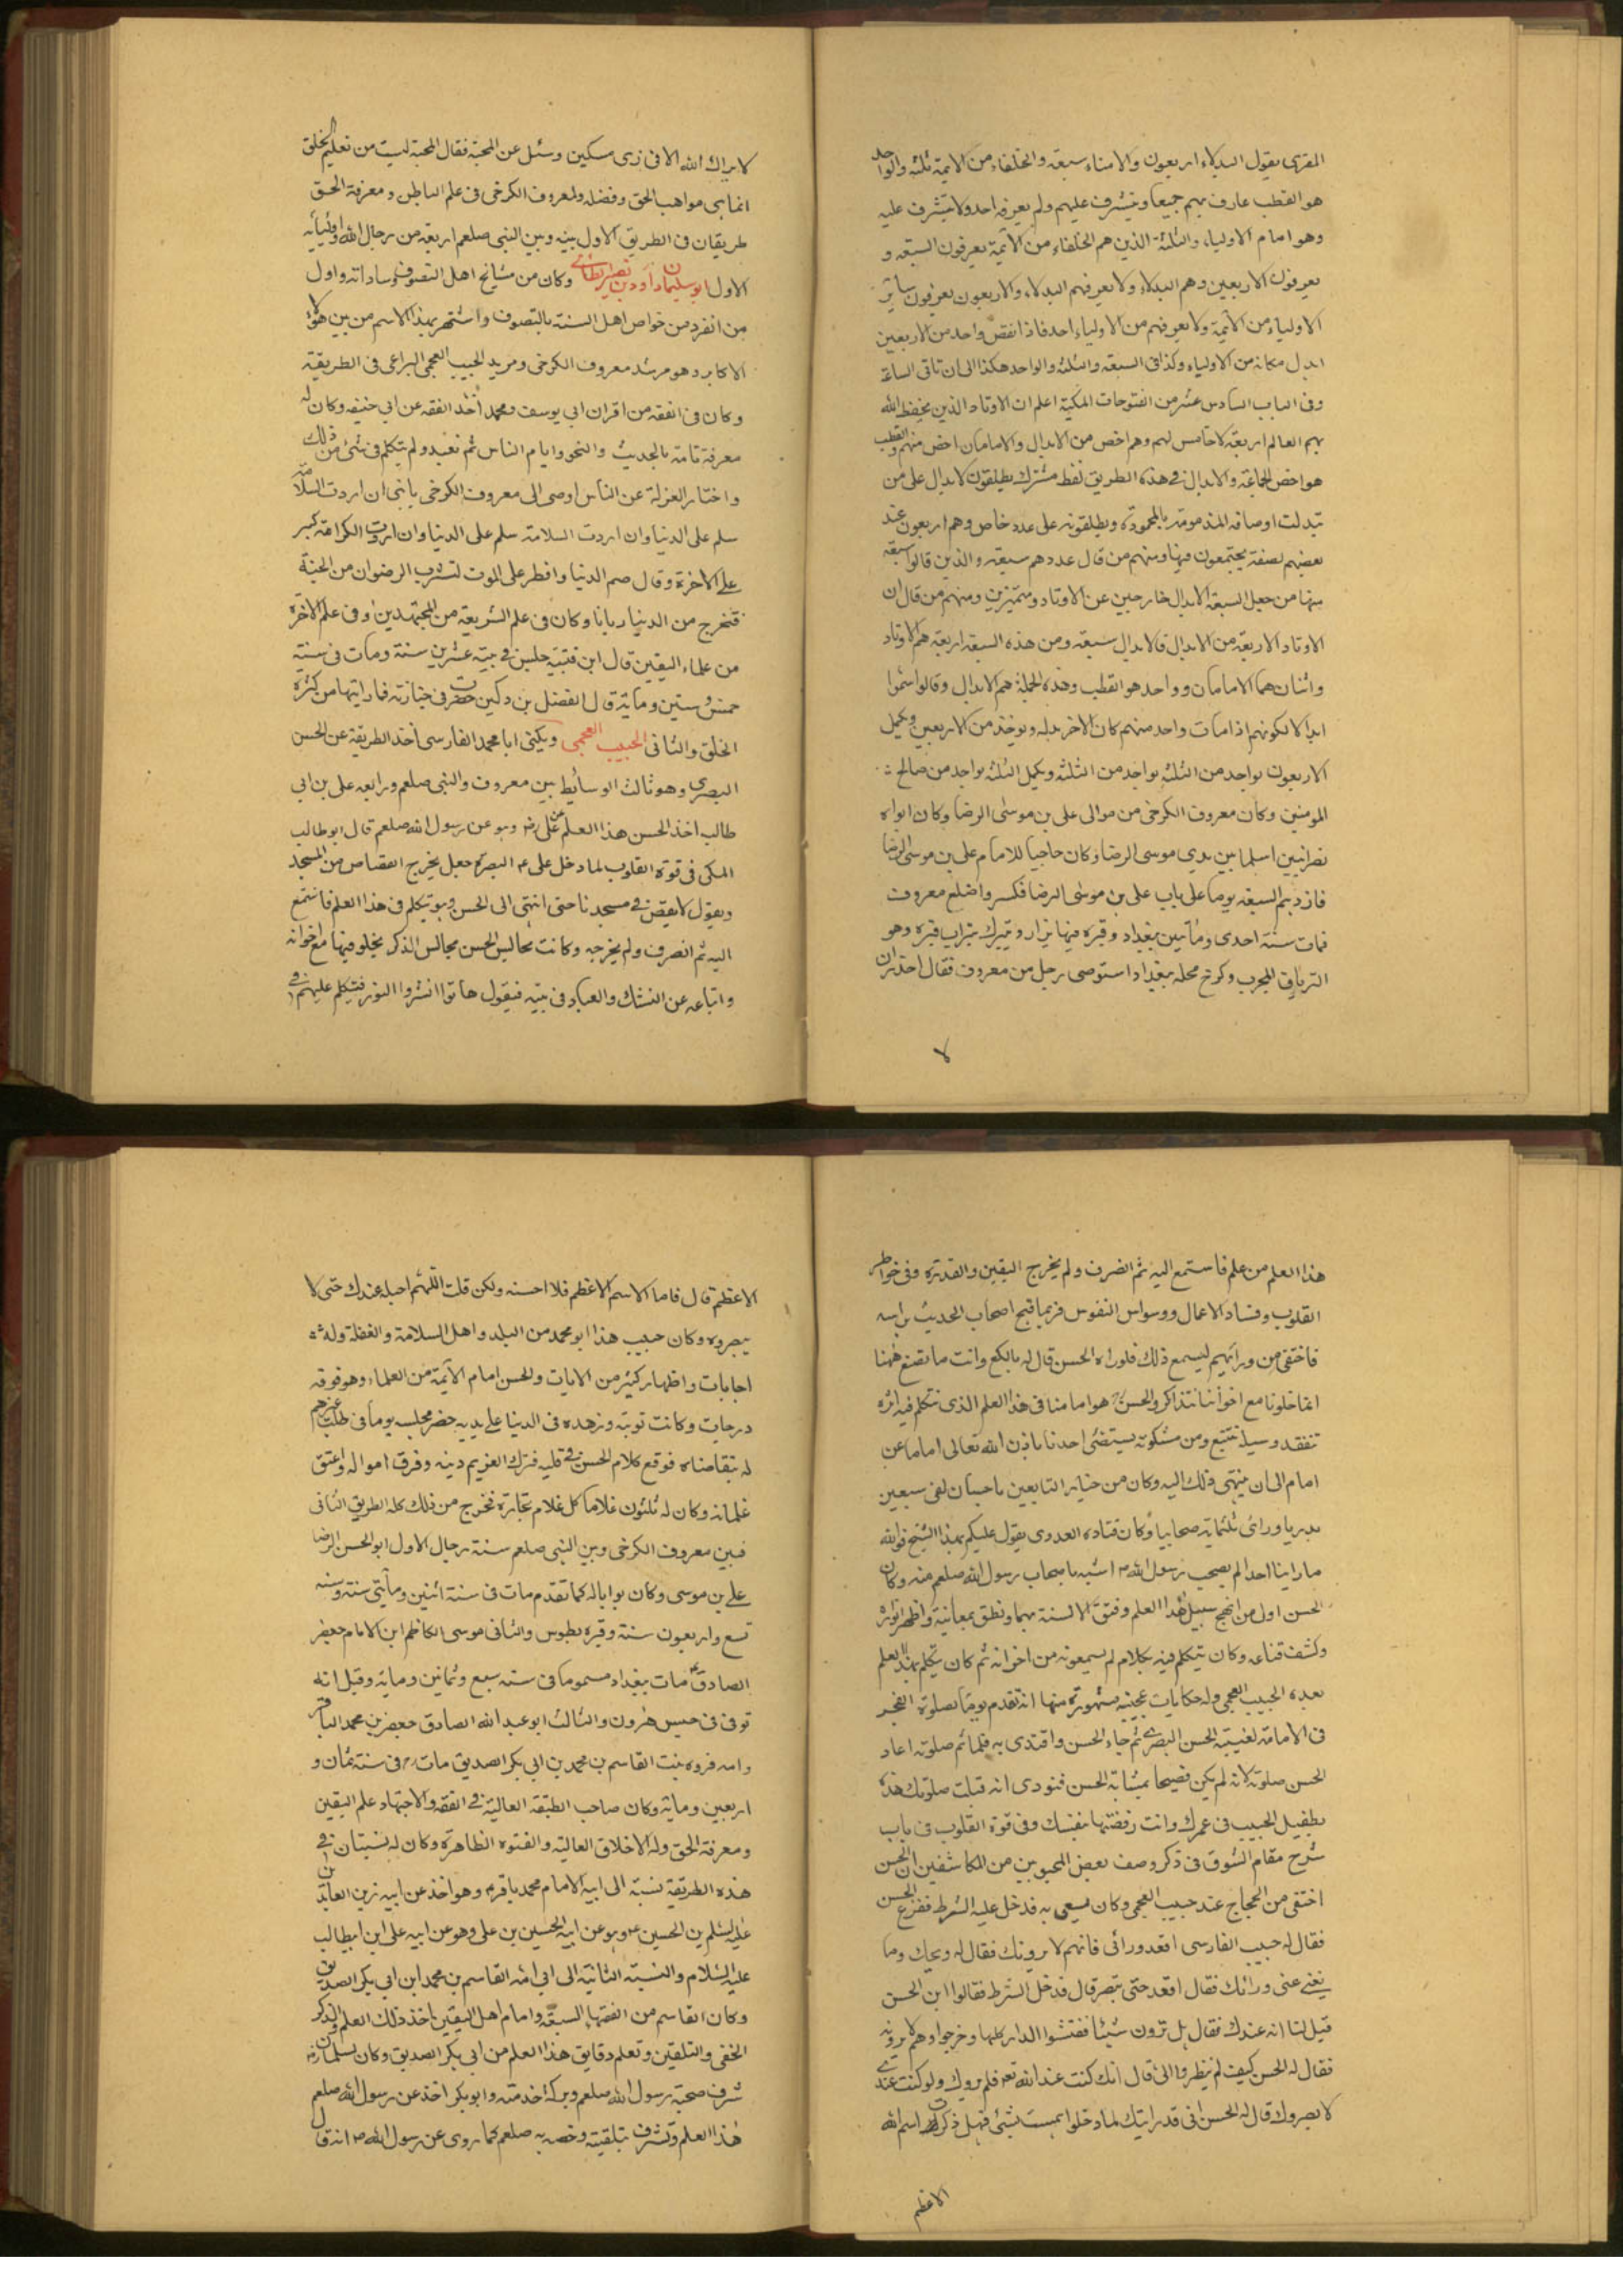 المغربى يقول البدلاء اربعون والامناء سبعة والخلفاء من الائمة ثلثة والواحد
هو القطب عارف بهم جميعا ويشرف عليهم ولم يعرفه احد ولا يتشرف عليه
وهو امام الاولياء والثلثة الذين هم الخلفاء من الائمة يعرفون السبعة و
يعرفون الاربعين وهم البدلاء ولا يعرفهم البدلاء والاربعون يعرفون سائر
الاولياء من الائمة ولا يعرفهم من الاولياء احد فاذا نقص واحد من الاربعين
ابدل مكانه من الاولياء وكذا فى السبعة والثلثة والواحد هكذا الى ان تاتى الساعة
وفى الباب السادس عشر من الفتوحات المكية اعلم ان الاوتاد الذين يحفظ الله
بهم العالم اربعة لا خامس لهم وهم اخص من الابدال والامامان اخص منهم والقطب
هو اخص الجماعة والابدال فى هذه الطريق لفظ مشترك يطلقون الابدال على من
تبدلت اوصافه المذمومة بالمحمودة ويطلقونه على عدد خاص وهم اربعون عند
بعضهم لصفة يجتمعون فيها ومنهم من قال عددهم سبعة والذين قالوا سبعة
منها من جعل السبعة الابدال خارجين عن الاوتاد ومتميزين ومنهم من قال ان
الاوتاد الاربعة من الابدال فالابدال سبعة ومن هذه السبعة اربعة هم الاوتاد
واثنان هما الامامان وواحد هو القطب وهذه الجملة هم الابدال وقالوا سموا
ابدالا لكونهم اذا مات واحد منهم كان الاخر بدله ويوخذ من الاربعين ويكمل
الاربعون بواحد من الثلثة بواحد من الثلثة ويكمل الثلثة بواحد من صالح
المومنين وكان معروف الكرخى من موالى على بن موسى الرضا وكان ابواه
نصرانيين اسلما بين يدي موسى الرضا وكان حاجبا للامام على بن موسى الرضا
فازدحم السبعة يوما على باب على بن موسى الرضا فكسروا ضلع معروف
فمات سنة احدى ومأتين ببغداد وقبره فيها يزار ويتبرك بتراب قبره وهو
الترياق المجرب وكرخ محلة ببغداد استوصى رجل من معروف فقال احذر ان
لا
لا يراك الله الا فى زى مسكين وسئل عن المحبة فقال المحبة ليست من تعليم الخلق
انما هى مواهب الحق وفضله ولمعروف الكرخى فى علم الباطن ومعرفة الحق
طريقان فى الطريق الاول بينه وبين النبى صلعم اربعة من رجال الله واوليائه
الاول ابو سليمان داود بن نصير الطائى وكان من مشايخ اهل التصوف وساداته واول
من انفرد من خواص اهل السنة بالتصوف واشتهر بهذا الاسم من بين هؤلاء
الاكابر وهو مرشد معروف الكرخى ومريد الحبيب العجمى الراعى فى الطريقة
وكان فى الفقه من اقران ابى يوسف ومحمد اخذ الفقه عن ابى حنيفه وكان له
معرفة تامة بالحديث والنحو وايام الناس ثم تعبد ولم يتكلم فى شئ من ذلك
واختار العزلة عن الناس اوصى الى معروف الكرخى يا بنى ان اردت السلامة
سلم على الدنيا وان اردت السلامة سلم على الدنيا وان اردت الكرامة كبر
على الاخرة وقال صم الدنيا وافطر على الموت لتشرب الرضوان من الجنة
فتخرج من الدنيا ريانا وكان فى علم الشريعة من المجتهدين وفى علم الاخرة
من علماء اليقين قال ابن قتيبة جلس فى بيته عشرين سنة ومات فى سنة
خمس وستين وماية قال الفضل بن دكين حضرت فى جنازته فما رايتها من كثرة
الخلق والثانى الحبيب العجمى ويكنى ابا محمد الفارسى اخذ الطريقة عن الحسن
البصرى وهو ثالث الوسايط بين معروف والنبى صلعم ورابعه على بن ابى
طالب اخذ الحسن هذا العلم عن على رضه وهو عن رسول الله صلعم قال ابو طالب
المكى فى قوت القلوب لما دخل على البصرة جعل يخرج القصاص من المسجد
ويقول لا يقص فى مسجدنا حتى انتهى الى الحسن وهو يتكلم فى هذا العلم فاستمع
اليه ثم انصرف ولم يخرجه وكانت مجالس الحسن مجالس الذكر يخلو فيها مع اخوانه
واتباعه عن النسك والعباد فى بيته فيقول هاتوا انشروا النور فيتكلم عليهم فى
هذا العلم من علم فاستمع اليه ثم انصرف ولم يخرج اليقين والقدرة وفى خواطر
القلوب وفساد الاعمال ووسواس النفوس فربما قبح اصحاب الحديث براسه
فاختفى من ورائهم ليسمع ذلك فلو راه الحسن قال له يا لكع وانت ما تصنع ههنا
انما خلونا مع اخواننا نتذاكر والحسن هو امامنا فى هذا العلم الذى نتكلم فيه اثره
نتفقد وسبيله نتبع ومن مشكوته يستضئ احدنا باذن الله تعالى اماما عن
امام الى ان ينتهى ذلك اليه وكان من خيار التابعين باحسان لقى سبعين
بدريا وراى ثلثماية صحابيا وكان قتاده العدوى يقول عليكم بهذا الشيخ فوالله
ما راينا احدا لم يصحب رسول الله اشبه باصحاب رسول الله صلعم منه وكان
الحسن اول من انهج سبيل هذا العلم وفتق الالسنة بها ونطق بمعانيه واظهر انواره
وكشف قناعه وكان يتكلم فيه بكلام لم يسمعونه من اخوانه ثم كان يتكلم بهذا العلم
بعده الحبيب العجمى وله حكايات عجيبه مشهورة منها انه تقدم يوما بصلوة الفجر
فى الامامة لغيبة الحسن البصرى ثم جاء الحسن واقتدى به فلما تم صلوته اعاد
الحسن صلوته لانه لم يكن فصيحا بمثابة الحسن فنودى انه قبلت صلوتك هذه
بطفيل الحبيب فى عمرك وانت رفضتها بنفسك وفى قوة القلوب فى باب
شرح مقام الشوق فى ذكر وصف بعض المحبوبين من المكاشفين ان الحسن
اختفى من الحجاج عند حبيب العجمى وكان يسعى به فدخل عليه الشرط ففزع الحسن
فقال له حبيب الفارسى اقعد ورائى فانهم لا يرونك فقال له ويحك وما
يغنى عنى ورائك فقال اقعد حتى تبصر قال فدخل الشرط فقالوا اين الحسن
قيل لنا انه عندك فقال هل ترون شيئا ففتشوا الدار كلها وخرجوا وهم لا يرونه
فقال له الحسن كيف لم ينظروا الى قال انك كنت عند الله تعه فلم يروك ولو كنت عندى
لا بصروك قال له الحسن انى قد رايتك لما دخلوا همست بشئ فهل ذكرت اسم الله
الاعظم
الاعظم قال فاما الاسم الاعظم فلا احسنه ولكن قلت اللهم اجعله عندك حتى لا
يبصروه وكان حبيب هذا ابو محمد من البله واهل السلامة والغفلة وله
اجابات واظهار كثير من الايات والحسن امام الائمة من العلماء وهو فوقه
درجات وكانت توبته وزهده فى الدنيا على يديه حضر مجلسه يوما فى طلب غريم
له يتقاضاه فوقع كلام الحسن فى قلبه فترك الغريم دينه وفرق امواله واعتق
غلمانه وكان له ثلثون غلاما كل غلام تجارة فخرج من ذلك كله الطريق الثانى
فبين معروف الكرخى وبين النبى صلعم ستة رجال الاول ابو الحسن الرضا
على بن موسى وكان بوابا له كما تقدم مات فى سنة اثنين ومأتى سنة وسنه
تسع واربعون سنة وقبره بطوس والثانى موسى الكاظم ابن الامام جعفر
الصادق مات ببغداد مسموما فى سنة سبع وثمانين ومايه وقيل انه
توفى فى حبس هرون والثالث ابو عبد الله الصادق جعفر بن محمد الباقر
وامه فروه بنت القاسم بن محمد بن ابى بكر الصديق مات فى سنة ثمان و
اربعين ومايه وكان صاحب الطبقة العالية فى الفقه والاجتهاد علم اليقين
ومعرفة الحق وله الاخلاق العالية والفتوه الظاهرة وكان له نسبتان فى
هذه الطريقة نسبة الى ابيه الامام محمد باقر وهو اخذ عن ابيه زين العابدين
على بن الحسين وهو عن ابيه الحسين بن على وهو عن ابيه على ابن ابيطالب
عليه السلام والنسبة الثانية الى ابى امه القاسم بن محمد ابن ابى بكر الصديق
وكان القاسم من الفقهاء السبعة وامام اهل اليقين اخذ ذلك العلم والذكر
الخفى والتلقين وتعلم دقايق هذا العلم من ابى بكر الصديق وكان لسلمان
شرف صحبة رسول الله صلعم وبركة خدمته وابو بكر اخذ عن رسول الله صلعم
هذا العلم وتشرف بتلقينه وخصه به صلعم كما روى عن رسول الله انه قال